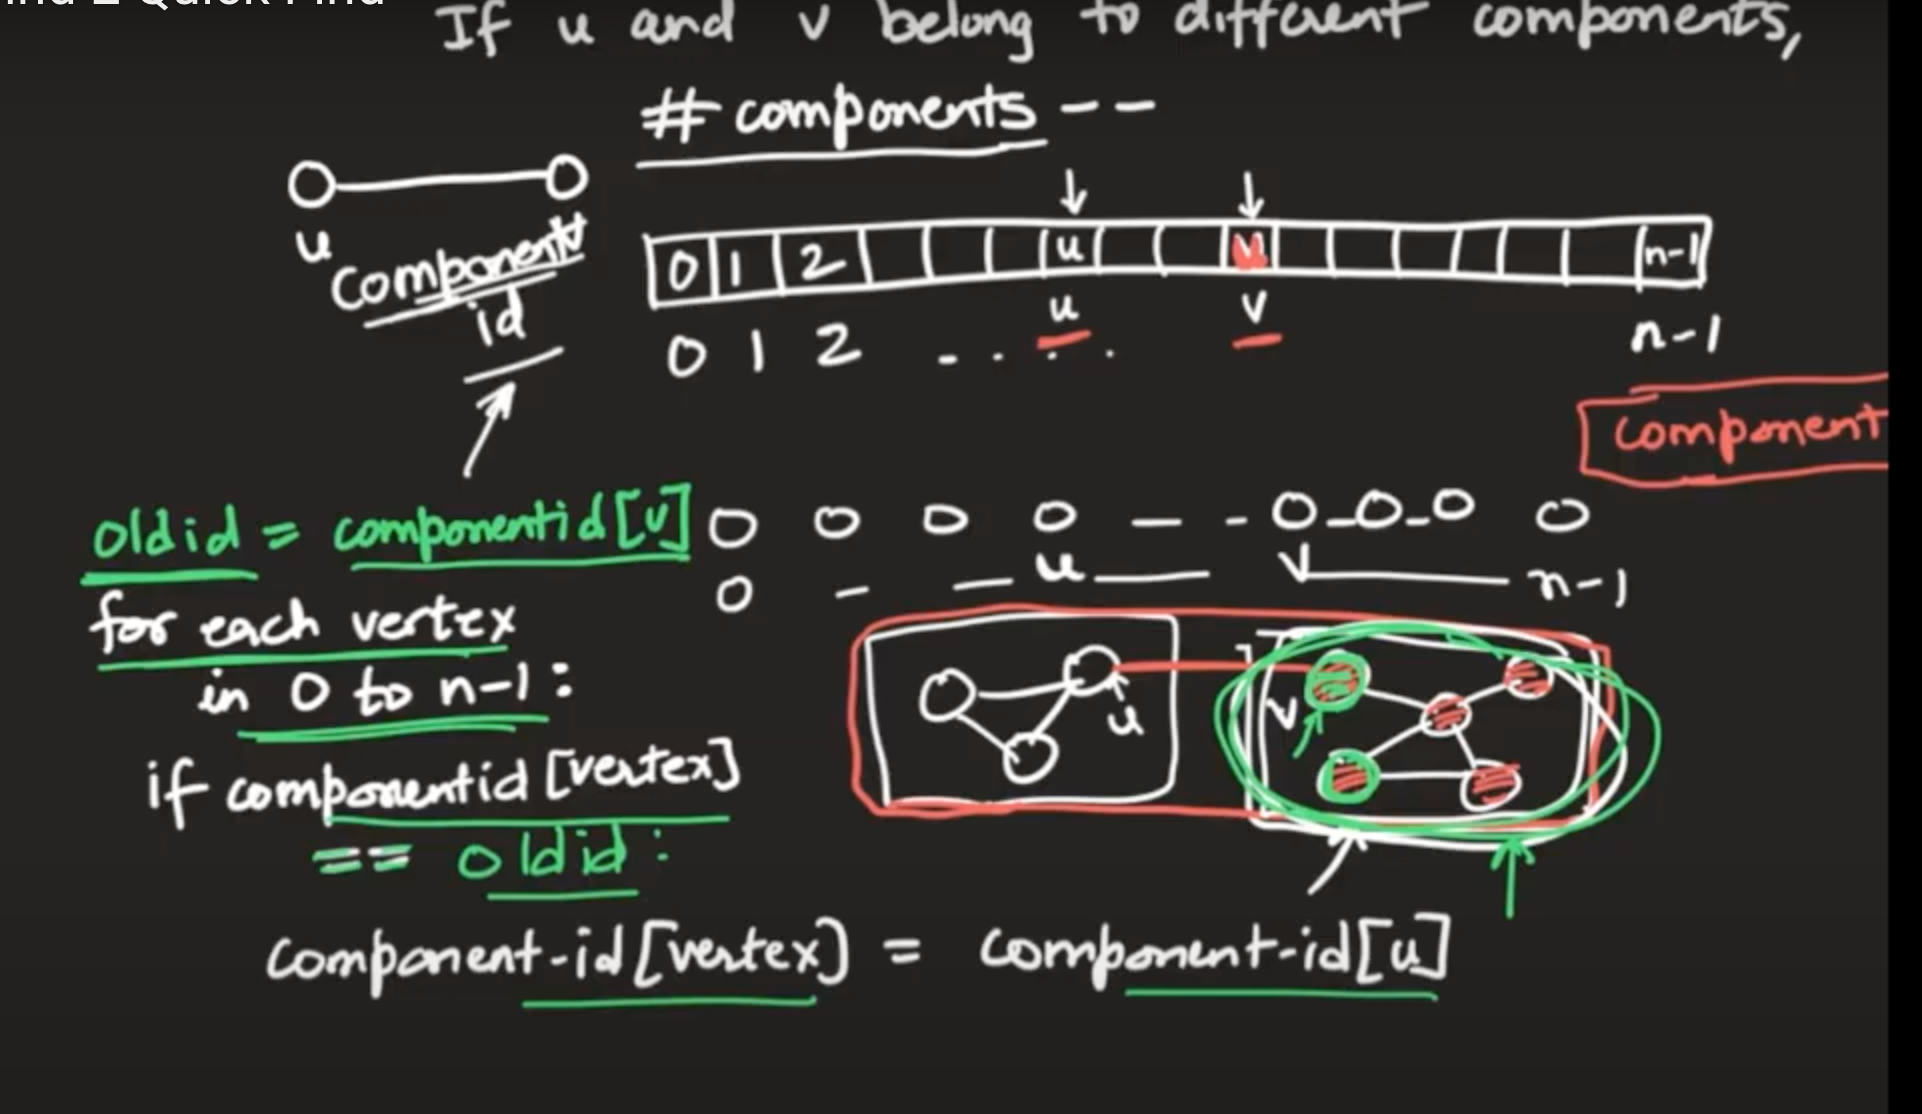 Quick Find
If u and v belong to different components,
# components --
u
component
id
0 1 2 u n-1
0 1 2 - . . . u v n-1
component
oldid = componentid[v]
0 - - u v n-1
for each vertex
in 0 to n-1:
u
v
if componentid [vertex]
== oldid:
component-id[vertex] = component-id[u]